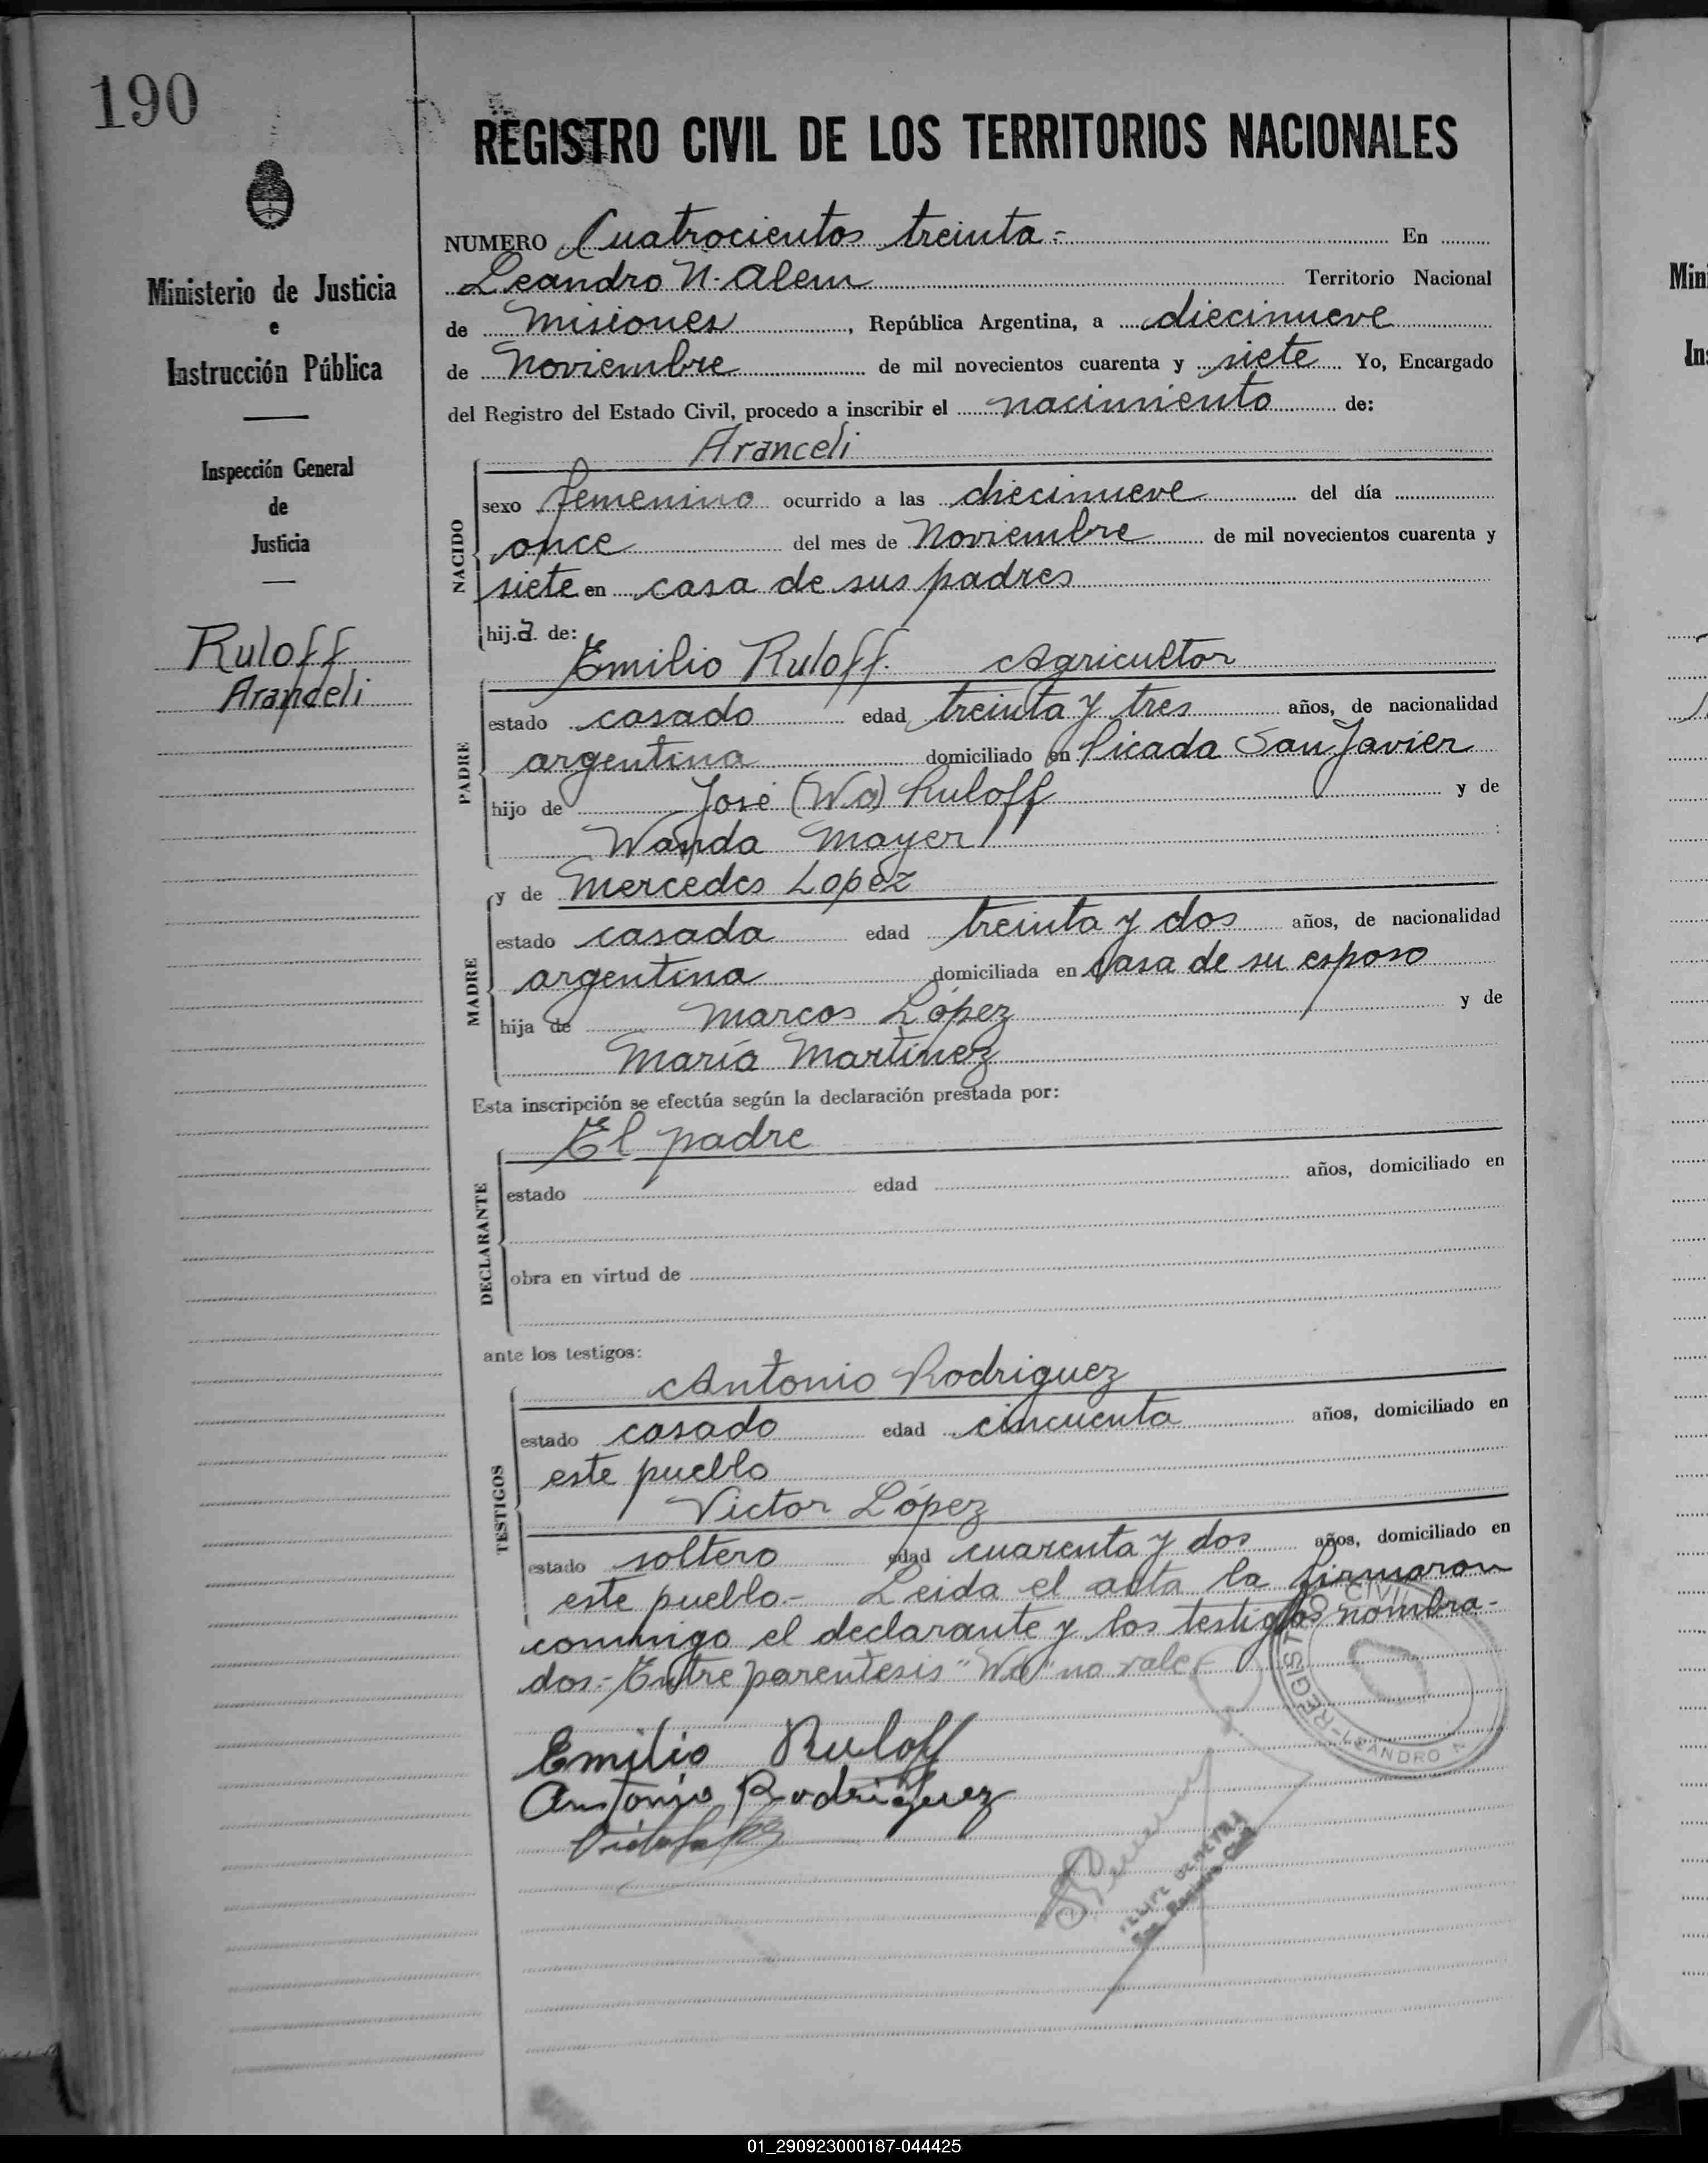 190
REGISTRO CIVIL DE LOS TERRITORIOS NACIONALES
Ministerio de Justicia
e
Instrucción Pública
Inspección General
de
Justicia
Ruloff
Aranceli
NUMERO Cuatrocientos treinta.- En
Leandro N. Alem Territorio Nacional
de Misiones, República Argentina, a diecinueve
de Noviembre de mil novecientos cuarenta y siete Yo, Encargado
del Registro del Estado Civil, procedo a inscribir el nacimiento de:
Aranceli
NACIDO
sexo femenino ocurrido a las diecinueve del día
once del mes de Noviembre de mil novecientos cuarenta y
siete en casa de sus padres
hij.a de:
Emilio Ruloff. Agricultor
PADRE
estado casado edad treinta y tres años, de nacionalidad
argentina domiciliado en Picada San Javier
hijo de José (Wa) Ruloff y de
Wanda Mayer
y de Mercedes Lopez
MADRE
estado casada edad treinta y dos años, de nacionalidad
argentina domiciliada en casa de su esposo
hija de Marcos López y de
María Martínez
Esta inscripción se efectúa según la declaración prestada por:
El padre
DECLARANTE
estado edad años, domiciliado en
obra en virtud de
ante los testigos:
Antonio Rodriguez
TESTIGOS
estado casado edad cincuenta años, domiciliado en
este pueblo
Victor López
estado soltero edad cuarenta y dos años, domiciliado en
este pueblo.- Leida el acta la firmaron
conmigo el declarante y los testigos nombra-
dos.- Entre parentesis "Wa" no vale
REGISTRO CIVIL
LEANDRO N
Emilio Ruloff
Antonio Rodriguez
01_290923000187-044425